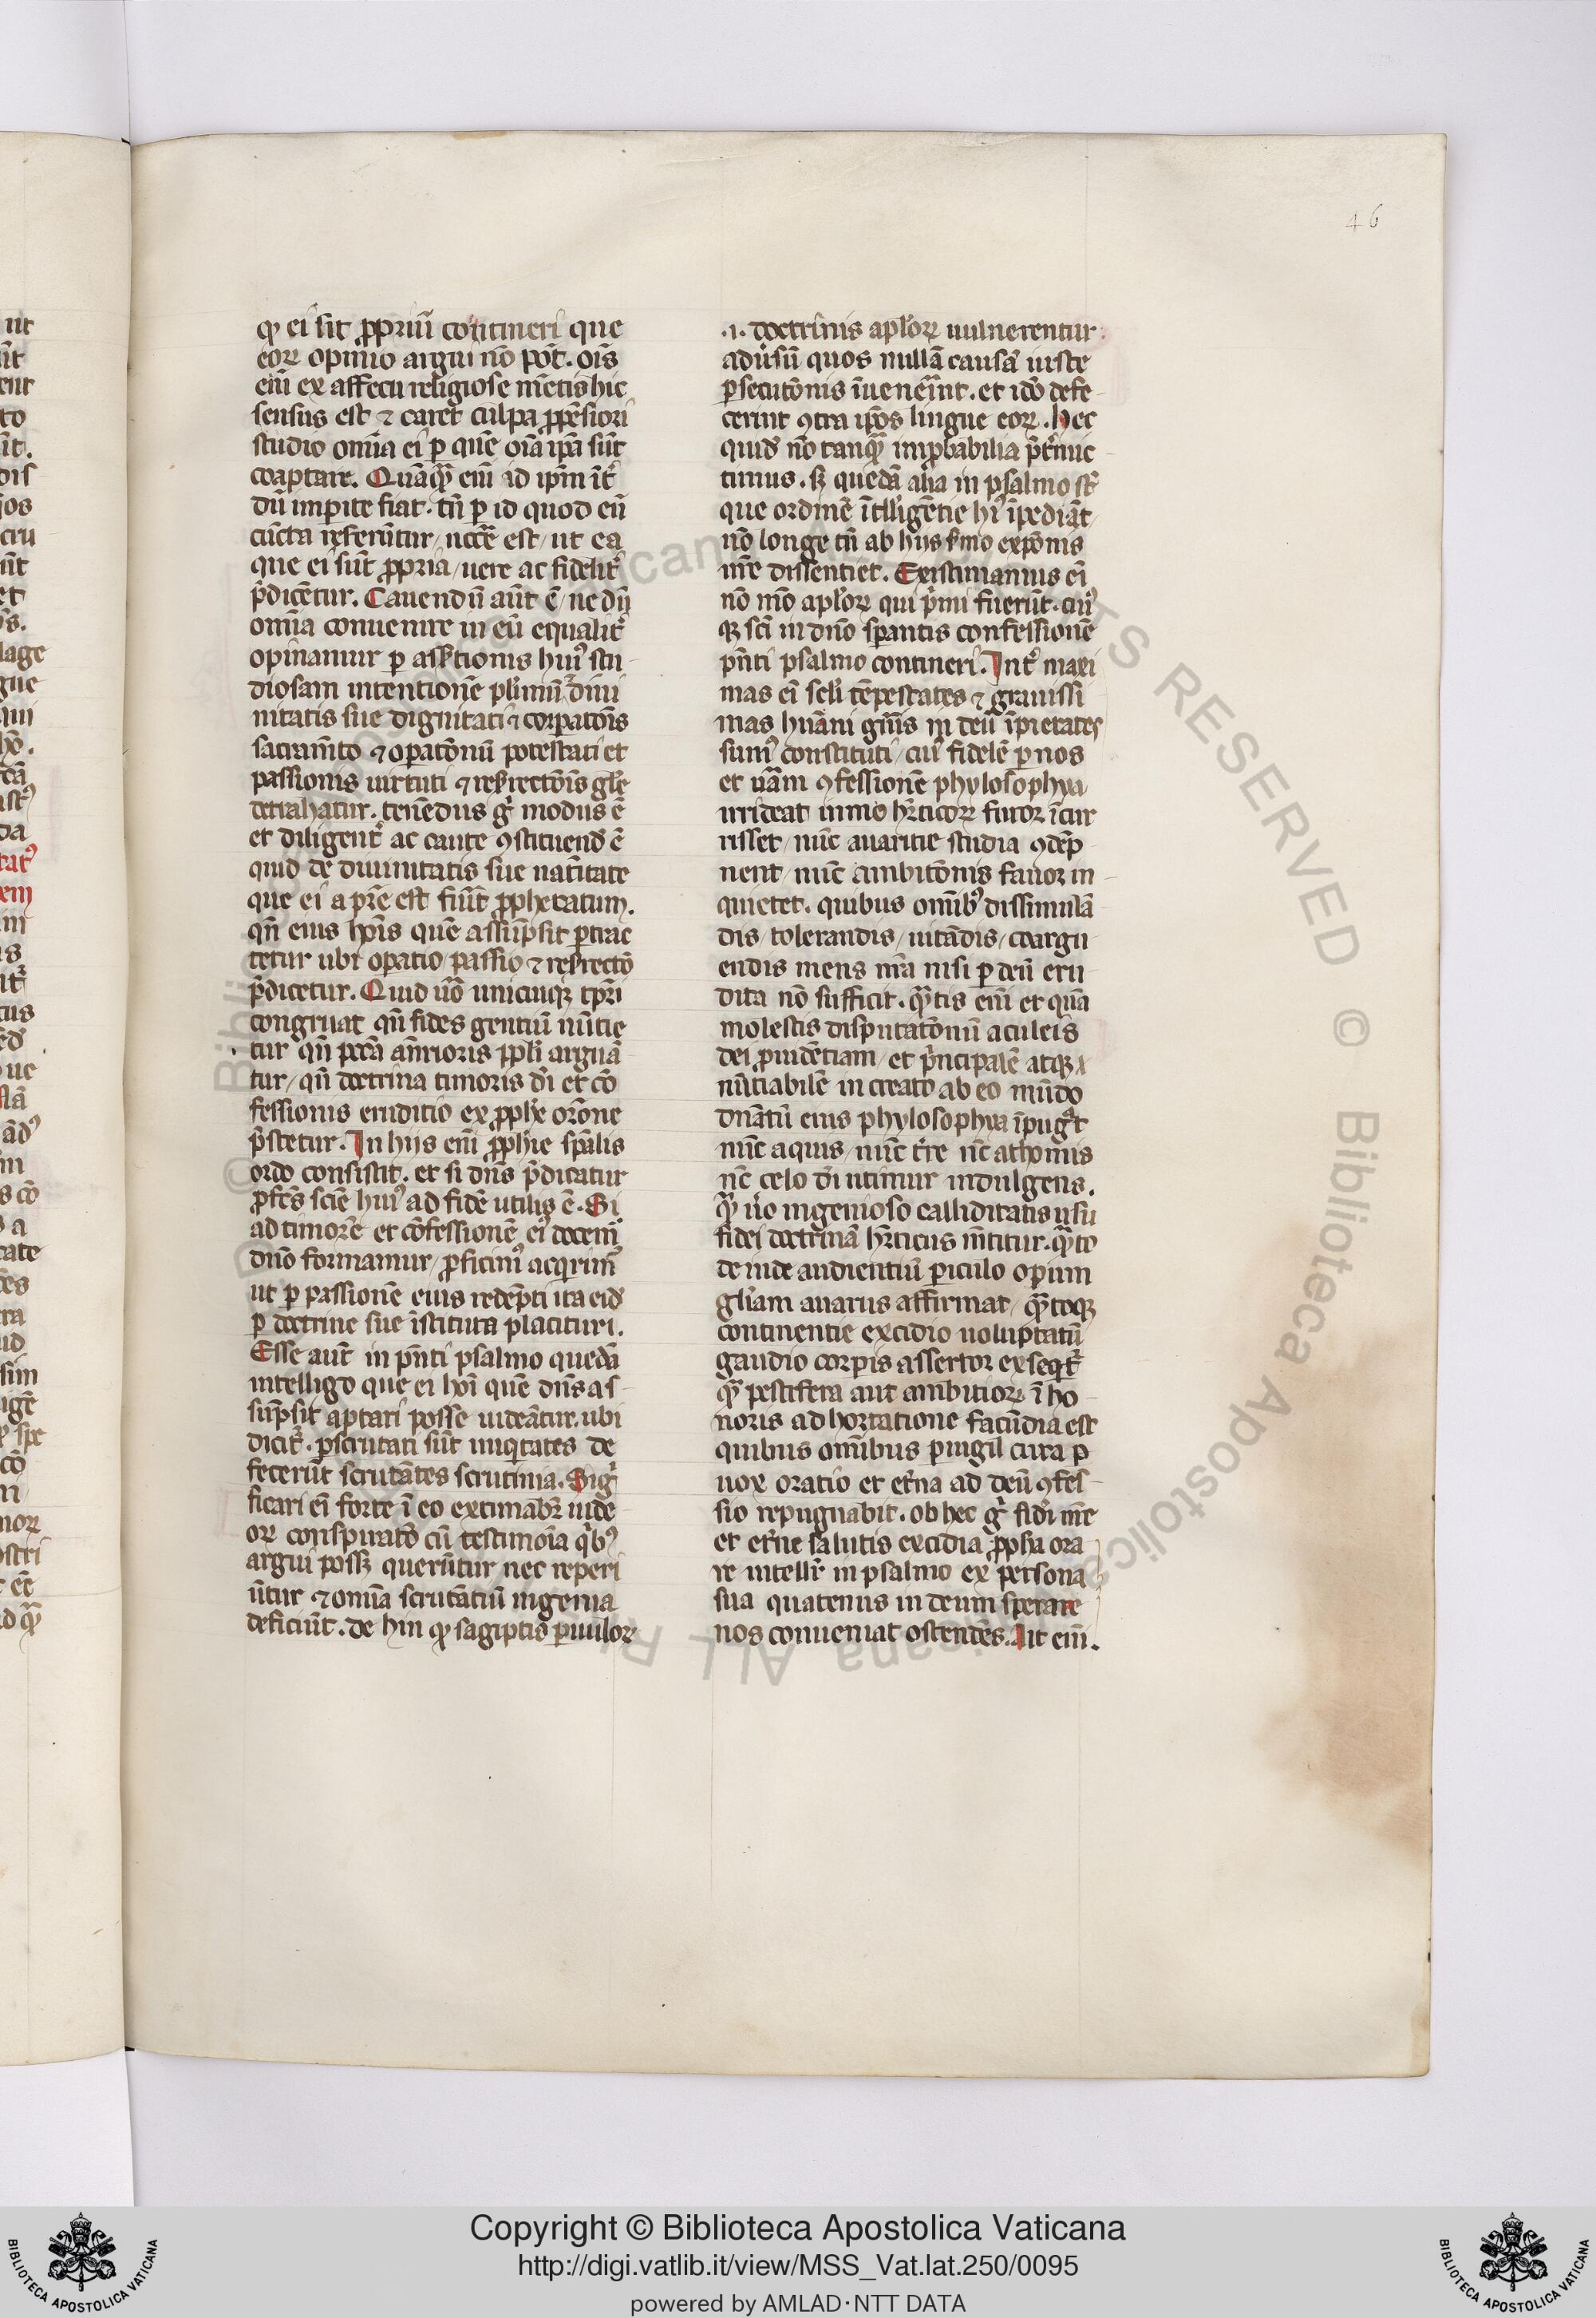 46
ꝙ ei sit ꝓpriū contineri que
eoꝝ opinio argui nō pōt. oīs
eīn ex affecu religiose mētis hic
sensus est ⁊ caret culpa ꝓpēsiori
studio omīa ei ꝑ quē oīa ipā sūt
coaptare. Quāqͣ eīn id ipm īt᷑
dū imperite fiat. tn̄ ꝑ id quod eū
cūcta referūtur / ncc̄e est / ut ea
que ei sūt ꝓpria / uere ac fidelit᷑
p̄dicētur. Cauendū aūt ē / ne dū
omīa conuenire in eū equalit᷑
opinamur ꝑ assertionis huiꝰ stu
diosam intentionē plimū diui
nitatis sue dignitati ⁊ corpatōis
sacramto ⁊ opatōnū potestati et
passionis uirtuti ⁊ resrectōis gle
detrahatur. tenēdus gͦ modus ē
et diligent᷑ ac caute ꝯstituend ē
quid de diuinitatis sue natiuitate
que ei a pre est fiūt ꝓphetatum.
qn̄ eius hoīs quē assūpsit ptrac
tetur ubi opatio / passio ⁊ resrectō
p̄dicetur. Quid uō unicuiqꝫ tpri
congruat qn̄ fides gentiū nūtie
tur qn̄ pctā anrioris ppli arguā
tur / qn̄ doctrina timoris di et cō
fessionis eruditio ex ꝓphe orōne
p̄stetur. In hijs eni ꝓphie spalis
ordo consistit. et si dns p̄dicatur
ꝓfcs scie huiꝰ ad fidē utilis ē. Si
ad timorē et cōfessionē eiꝰ docemꝰ
dnō formamur / ꝓficimꝰ acqrimꝰ
ut ꝑ passionē eius redēpti ita eid
ꝑ doctrine sue īstituta placituri.
Esse aūt in pn̄ti psalmo quedā
intelligo que ei hoi quē dns as-
sūpsit aptari posse uideātur. ubi
dicit᷑. pscrutati sūt iniqtates de
fecerūt scrutātes scrutinia. Sigͥ
ficari ei forte ī eo extimabr iude
oꝝ conspiratō cū testimoīa qͥbꝰ
argui possꝫ querūtur nec reperi
ūtur ⁊ omīa scrutātiū ingenia
deficiūt. de hin ꝙ sagiptis puuloꝝ
.i. doctrinis aploꝝ uulnerentur
adusū quos nullā causā iuste
psecutōnis īueneīnt. et idō defe
cerint ꝯtra ipos lingue eoꝝ. Hec
quid nō tanqͣ improbabilia p̄tmic
timus. sꝫ quedā alia in psalmo st᷑
que ordinē ītlligētie hiꝰ īpediāt /
nō longe tn̄ ab hijs smo expōnis
nr̄e dissentiet. Existimamus ei
nō mō aploꝝ qui p̄mi fuerūt. cuiꝰ
qꝫ sci in dnō spantis confessionē
pn̄ti psalmo contineri. Int᷑ maxi
mas ei scli tēpestates ⁊ grauissi
mas huāni gn̄is in deū īpietates
sumꝰ constituti / cuiꝰ fidelē ꝑ nos
et uām ꝯfessionē phylosophya
irrideat inmo hrticoꝝ furor īcur
risset / nūc auaritie studia ꝯdep
nent / nūc ambitōnis fauor in-
quietet. quibus omībꝰ dissimulā
dis / tolerandis / uitādis / coargu
endis mens nr̄a nisi ꝑ deū eru
dita nō sufficit. qͣtis eni et quā
molestis disputatōnū aculeis
dei ꝓuidētiam / et p̄ncipalē atqꝫ
nūtiabilē in creato ab eo mūdo
dnātū eius phylosophya īpugͣt
nūc aquis / nūc tr̄e nc athomis
nc celo di utimur indulgens.
qͣ uo ingenioso calliditatis usu
fidei doctrinā hrticus mētitur. qͣto
de inde audientiū piculo opum
gliam auarus affirmat / qͣtoqꝫ
continentie excidio uoluptatū
gaudio corpis assertor exseqt᷑
qͣ pestifera aut ambitioꝝ ī ho-
noris ad hortatione facūdia est
quibus omībus puigil cura ꝑ
uox oratio et et᷑na ad deū ꝯfes-
sio repugnabit. ob hec gͦ fidi nr̄e
et et᷑ne salutis excidia ꝓpha ora
re intellr in psalmo ex persona
sua quatenus in deum sperare
nos conueniat ostendēs. Ait eni.
Copyright © Biblioteca Apostolica Vaticana
http://digi.vatlib.it/view/MSS_Vat.lat.250/0095
powered by AMLAD·NTT DATA
BIBLIOTECA APOSTOLICA VATICANA
BIBLIOTECA APOSTOLICA VATICANA